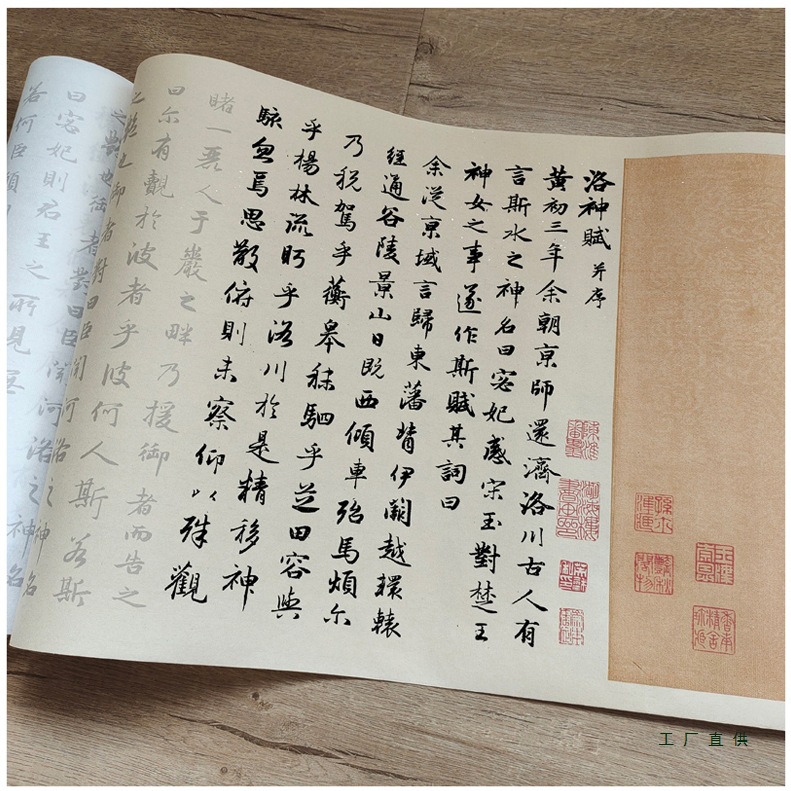 洛神賦 并序
黄初三年余朝京師還濟洛川古人有
言斯水之神名曰宓妃感宋玉對楚王
神女之事遂作斯賦其詞曰
余從京域言歸東藩背伊闕越轘轅
經通谷陵景山日既西傾車殆馬煩尓
乃税駕乎蘅皋秣駟乎芝田容與
乎楊林流眄乎洛川於是精移神
駭忽焉思散俯則未察仰以殊觀
睹一麗人于巖之畔乃援御者而告之
曰尓有覿於彼者乎彼何人斯若斯
之艷也御者對曰臣聞河洛之神名
曰宓妃則君王之所見無
若何臣願
工厂直供